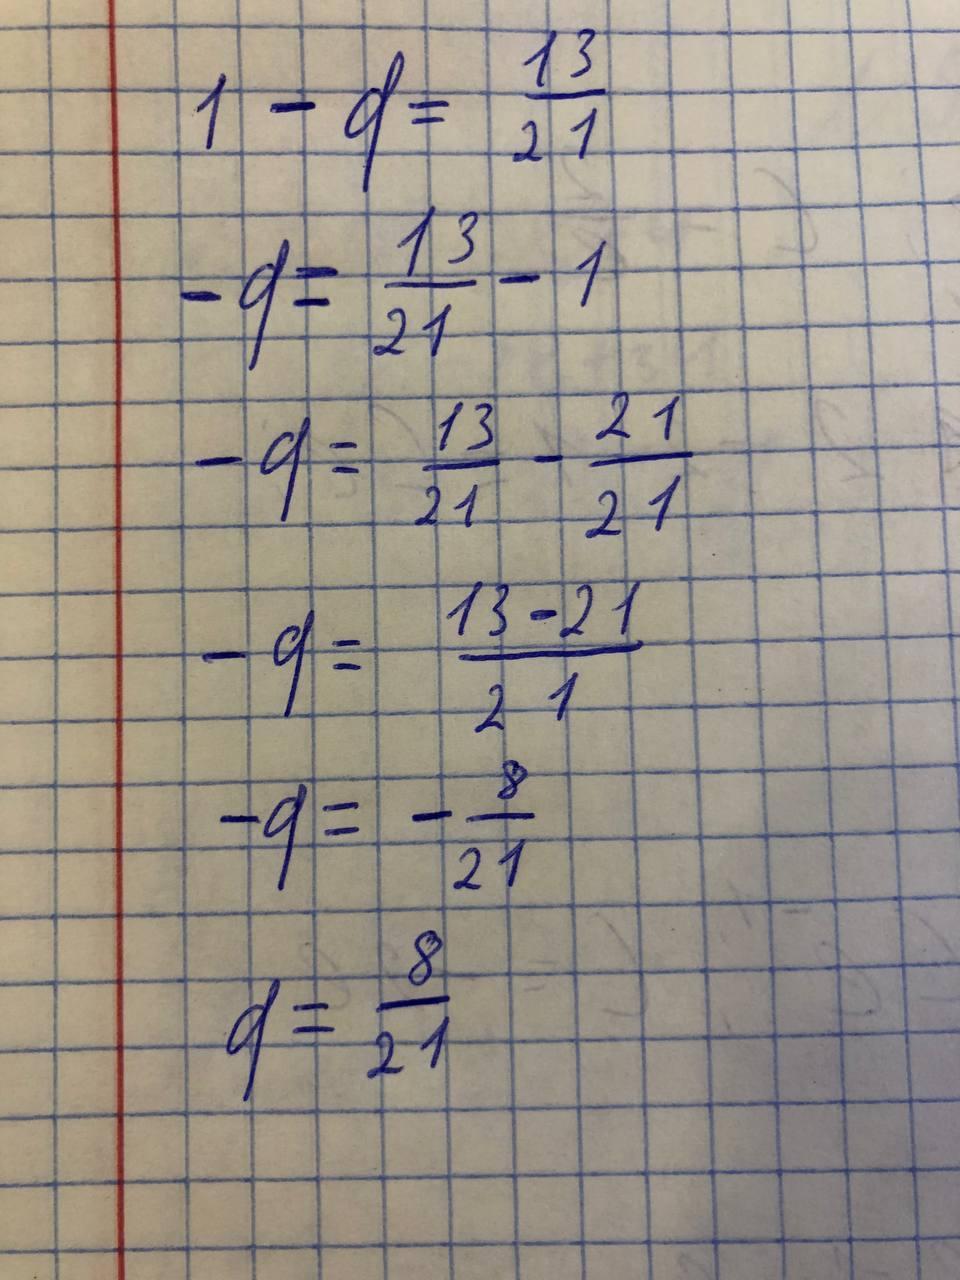 1 - q = 13/21
-q = 13/21 - 1
-q = 13/21 - 21/21
-q = (13-21)/21
-q = -8/21
q = 8/21